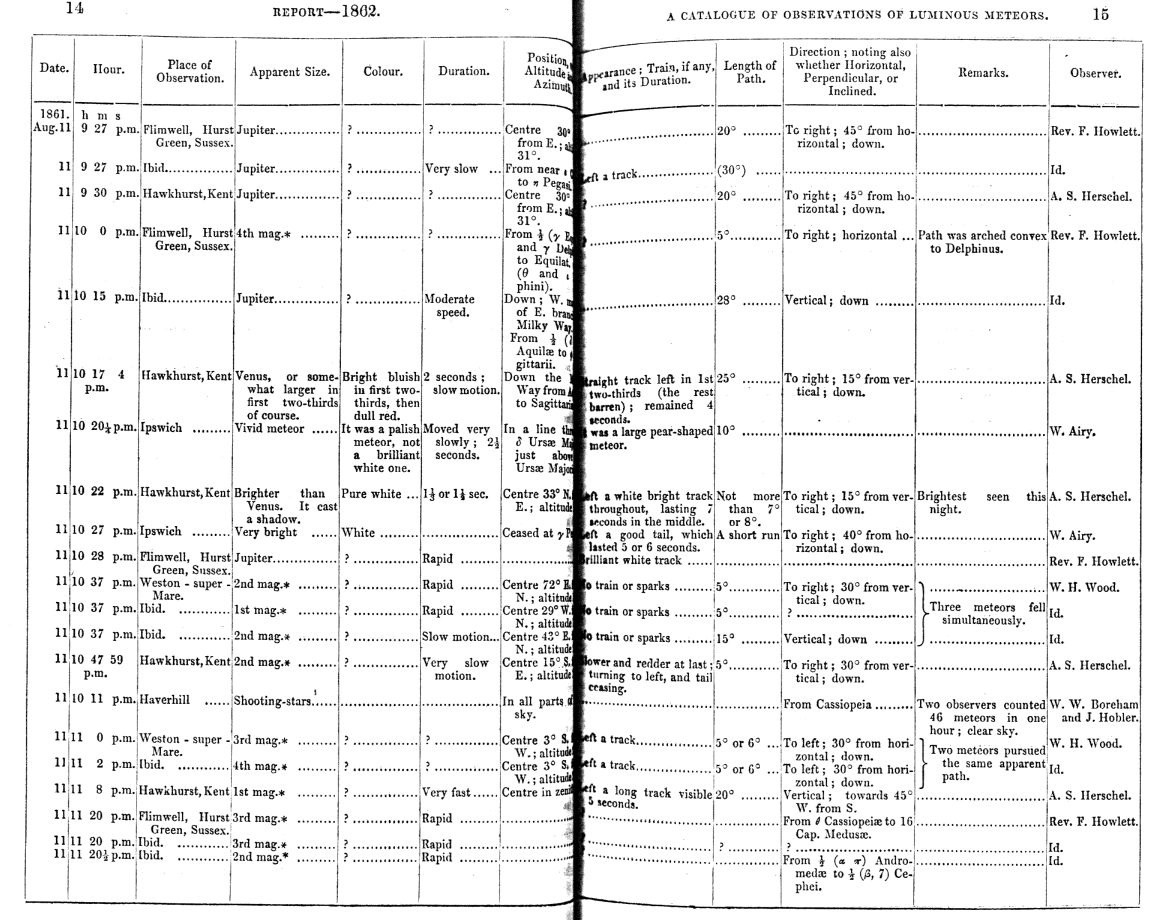 14 REPORT—1862.
Date. Hour. Place of Observation. Apparent Size. Colour. Duration. Position, Altitude Azimuth
1861. h m s
Aug.11 9 27 p.m. Flimwell, Hurst Jupiter.............. ? .............. ? .............. Centre 30°
Green, Sussex. from E.;
31°.
11 9 27 p.m. Ibid.............. Jupiter.............. ? .............. Very slow ... From near
to η Pegasi
11 9 30 p.m. Hawkhurst, Kent Jupiter.............. ? .............. ? .............. Centre 30°
from E.;
31°.
11 10 0 p.m. Flimwell, Hurst 4th mag.* ........ ? .............. ? .............. From ½ (γ
Green, Sussex. and γ
to Equilat.
(θ and
phini).
11 10 15 p.m. Ibid.............. Jupiter.............. ? .............. Moderate Down; W.
speed. of E.
Milky Way.
From ½
Aquilæ to
gittarii.
11 10 17 4 Hawkhurst, Kent Venus, or some- Bright bluish 2 seconds; Down the
p.m. what larger in in first two- slow motion. Way from
first two-thirds thirds, then to
of course. dull red.
11 10 20¼ p.m. Ipswich ......... Vivid meteor ...... It was a palish Moved very In a line
meteor, not slowly; 2½ δ Ursæ
a brilliant seconds. just
white one. Ursæ
11 10 22 p.m. Hawkhurst, Kent Brighter than Pure white ... Centre 33°
Venus. It cast E.; altitude
a shadow.
11 10 27 p.m. Ipswich ......... Very bright ...... White ......... .............. Ceased at γ
11 10 28 p.m. Flimwell, Hurst Jupiter.............. ? .............. Rapid ......... ..............
Green, Sussex.
11 10 37 p.m. Weston - super - 2nd mag.* ........ ? .............. Rapid ......... Centre 72° E.
Mare. N.; altitude
11 10 37 p.m. Ibid. ............ 1st mag.* ......... ? .............. Rapid ......... Centre 29° W.
N.; altitude
11 10 37 p.m. Ibid. ............ 2nd mag.* ........ ? .............. Slow motion... Centre 43° E.
N.; altitude
11 10 47 59 Hawkhurst, Kent 2nd mag.* ........ ? .............. Very slow Centre 15° S.
p.m. motion. E.; altitude
11 10 11 p.m. Haverhill ...... Shooting-stars...... .............. .............. In all parts
sky.
11 11 0 p.m. Weston - super - 3rd mag.* ......... ? .............. ? .............. Centre 3° S.
Mare. W.; altitude
11 11 2 p.m. Ibid. ............ 4th mag.* ......... ? .............. ? .............. Centre 3° S.
W.; altitude
11 11 8 p.m. Hawkhurst, Kent 1st mag.* ......... ? .............. Very fast ...... Centre in
11 11 20 p.m. Flimwell, Hurst 3rd mag.* ......... ? .............. Rapid ......... ..............
Green, Sussex.
11 11 20 p.m. Ibid. ............ 3rd mag.* ......... ? .............. Rapid ......... ..............
11 11 20½ p.m. Ibid. ............ 2nd mag.* ........ ? .............. Rapid ......... ..............
A CATALOGUE OF OBSERVATIONS OF LUMINOUS METEORS. 15
Appearance; Train, if any, and its Duration. Length of Path. Direction; noting also whether Horizontal, Perpendicular, or Inclined. Remarks. Observer.
.............. 20° ......... To right; 45° from ho- .............. Rev. F. Howlett.
rizontal; down.
Left a track.............. (30°) ...... .............. .............. Id.
.............. 20° ......... To right; 45° from ho- .............. A. S. Herschel.
rizontal; down.
.............. 5°............ To right; horizontal ... Path was arched convex Rev. F. Howlett.
to Delphinus.
.............. 28° ......... Vertical; down ......... .............. Id.
Straight track left in 1st 25° ......... To right; 15° from ver- .............. A. S. Herschel.
two-thirds (the rest tical; down.
barren); remained 4
seconds.
It was a large pear-shaped 10° ......... .............. .............. W. Airy.
meteor.
Left a white bright track Not more To right; 15° from ver- Brightest seen this A. S. Herschel.
throughout, lasting 7 than 7° tical; down. night.
seconds in the middle. or 8°.
Left a good tail, which A short run To right; 40° from ho- .............. W. Airy.
lasted 5 or 6 seconds. rizontal; down.
Brilliant white track ...... ......... .............. .............. Rev. F. Howlett.
No train or sparks ......... 5°............ To right; 30° from ver- .............. W. H. Wood.
tical; down.
No train or sparks ......... 5°............ ? .............. Three meteors fell Id.
simultaneously.
No train or sparks ......... 15° ......... Vertical; down ......... .............. Id.
Slower and redder at last; 5°............ To right; 30° from ver- .............. A. S. Herschel.
turning to left, and tail tical; down.
ceasing.
.............. ......... From Cassiopeia ......... Two observers counted W. W. Boreham
46 meteors in one and J. Hobler.
hour; clear sky.
Left a track.............. 5° or 6° ... To left; 30° from hori- W. H. Wood.
zontal; down. Two meteors pursued
Left a track.............. 5° or 6° ... To left; 30° from hori- the same apparent Id.
zontal; down. path.
Left a long track visible 20° ......... Vertical; towards 45° .............. A. S. Herschel.
5 seconds. W. from S.
.............. ......... From θ Cassiopeiæ to 16 .............. Rev. F. Howlett.
Cap. Medusæ.
.............. ? ......... ? .............. .............. Id.
.............. ......... From ½ (α π) Andro- .............. Id.
medæ to ½ (β, 7) Ce-
phei.